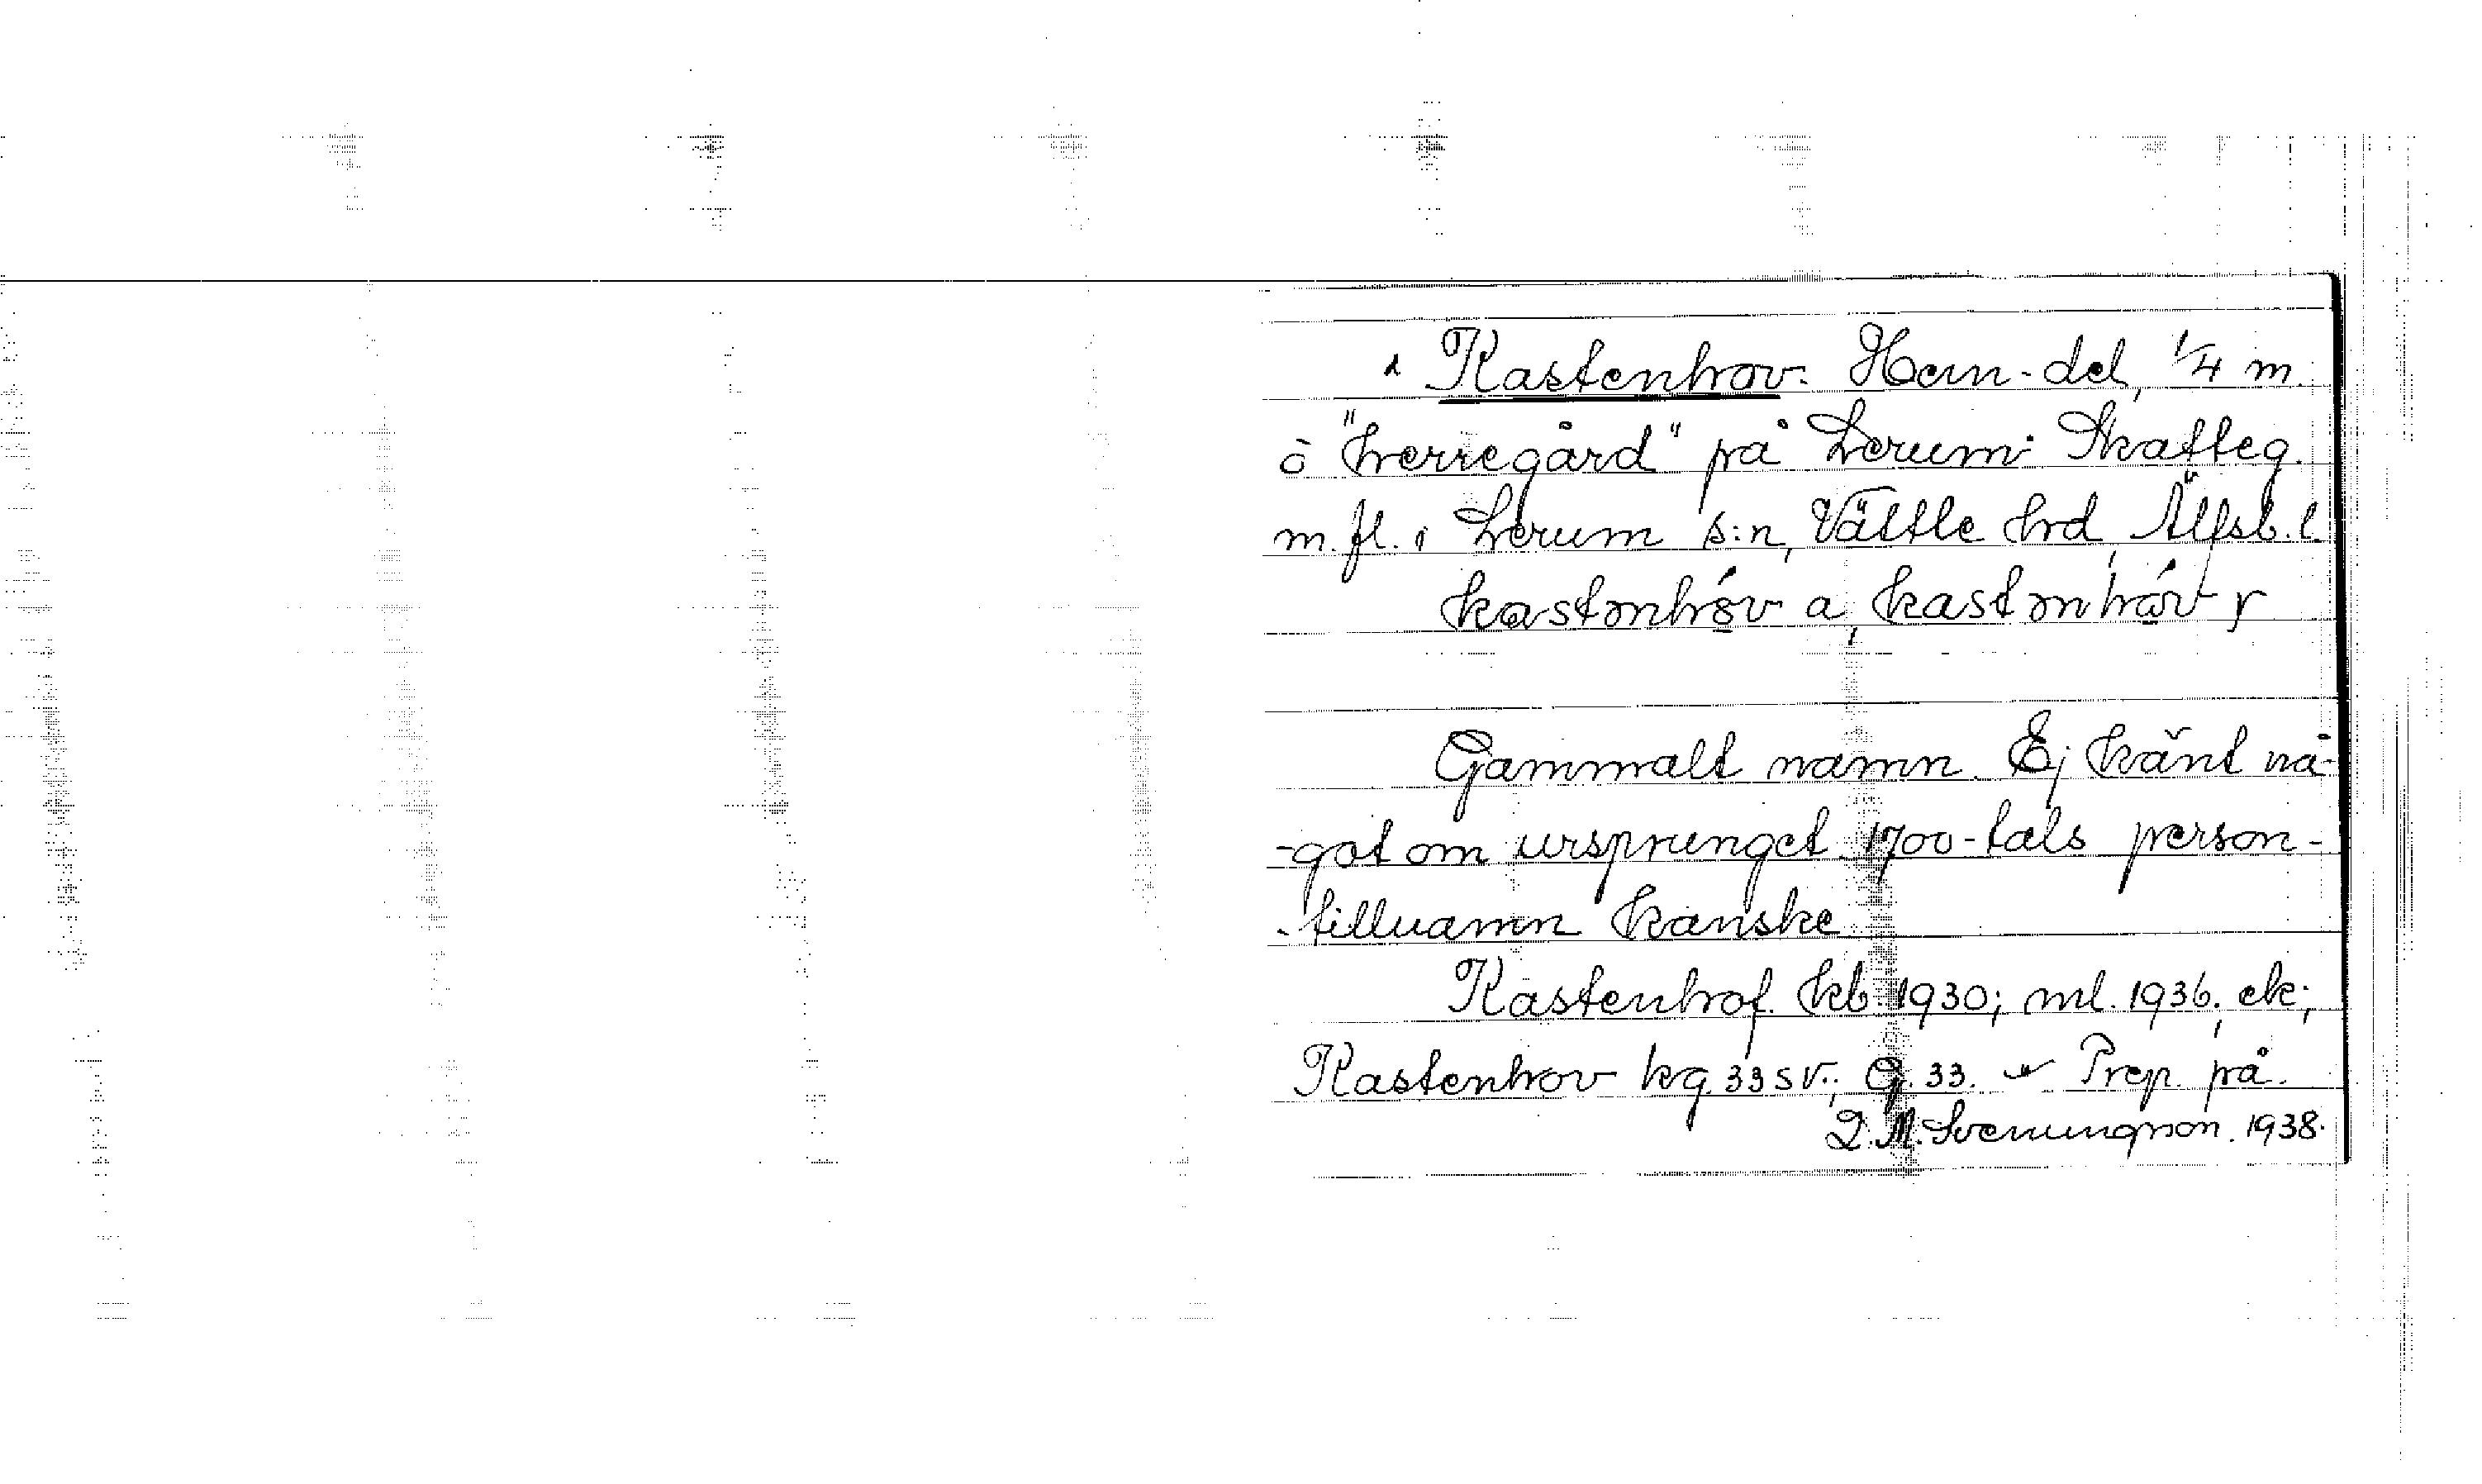 Kastenhov. Hem-del, 1/4 m.
o "herregård" på Lerum Skatteg.
m. fl. i Lerum s:n, Vättle hd, Älfsb. l.
kastənhóv a, kastənháv y
Gammalt namn. Ej känt nå-
-got om ursprunget. 1700-tals person-
-tillnamn kanske
Kastenhof. kb. 1930; ml. 1936; ek;
Kastenhov kg. 33 sv.; G. 33. Prep. på.
D. M. Svenungson. 1938.